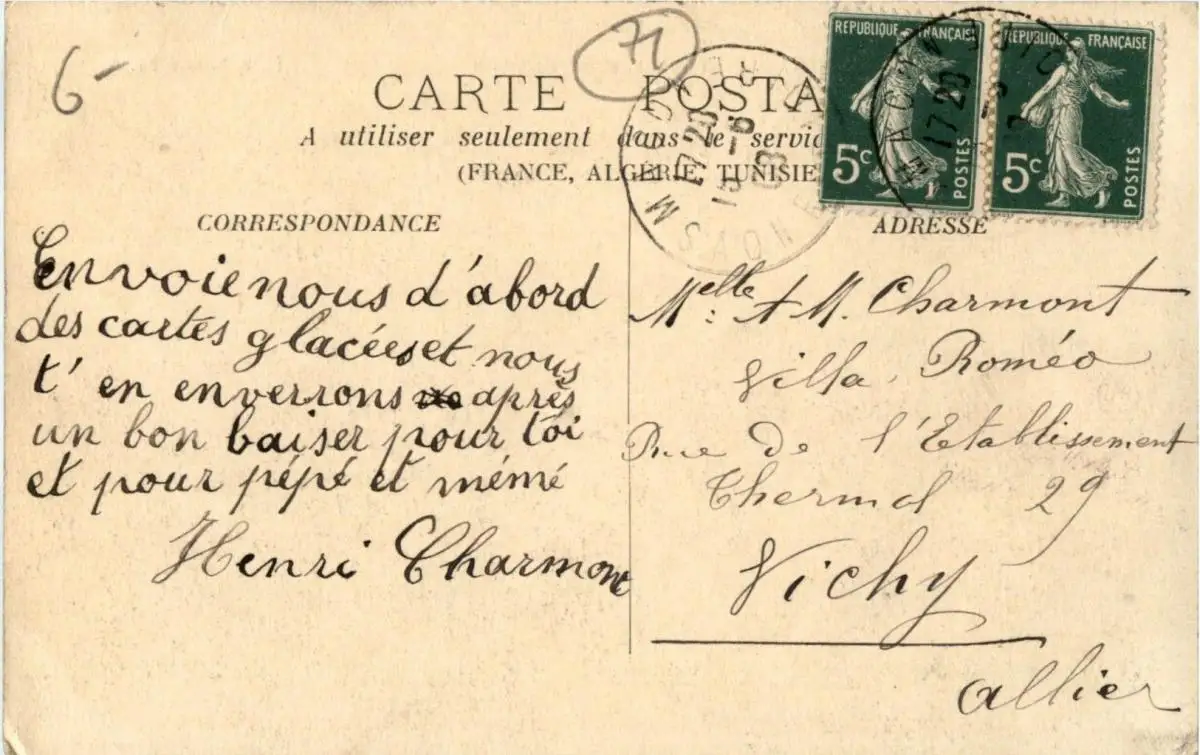 6-
71
CARTE POSTA
A utiliser seulement dans le servic
(FRANCE, ALGÉRIE, TUNISIE
REPUBLIQUE FRANÇAISE
5c POSTES
REPUBLIQUE FRANÇAISE
5c POSTES
17 20
17 20
15 -6
08
CORRESPONDANCE
ADRESSE
Envoie nous d'abord
des cartes glacées et nous
t'en enverrons après
un bon baiser pour toi
et pour pépé et mémé
Henri Charmont
Melle: A M. Charmont
Villa Roméo
Rue de l'Etablissement
Thermal 29
Vichy
Allier